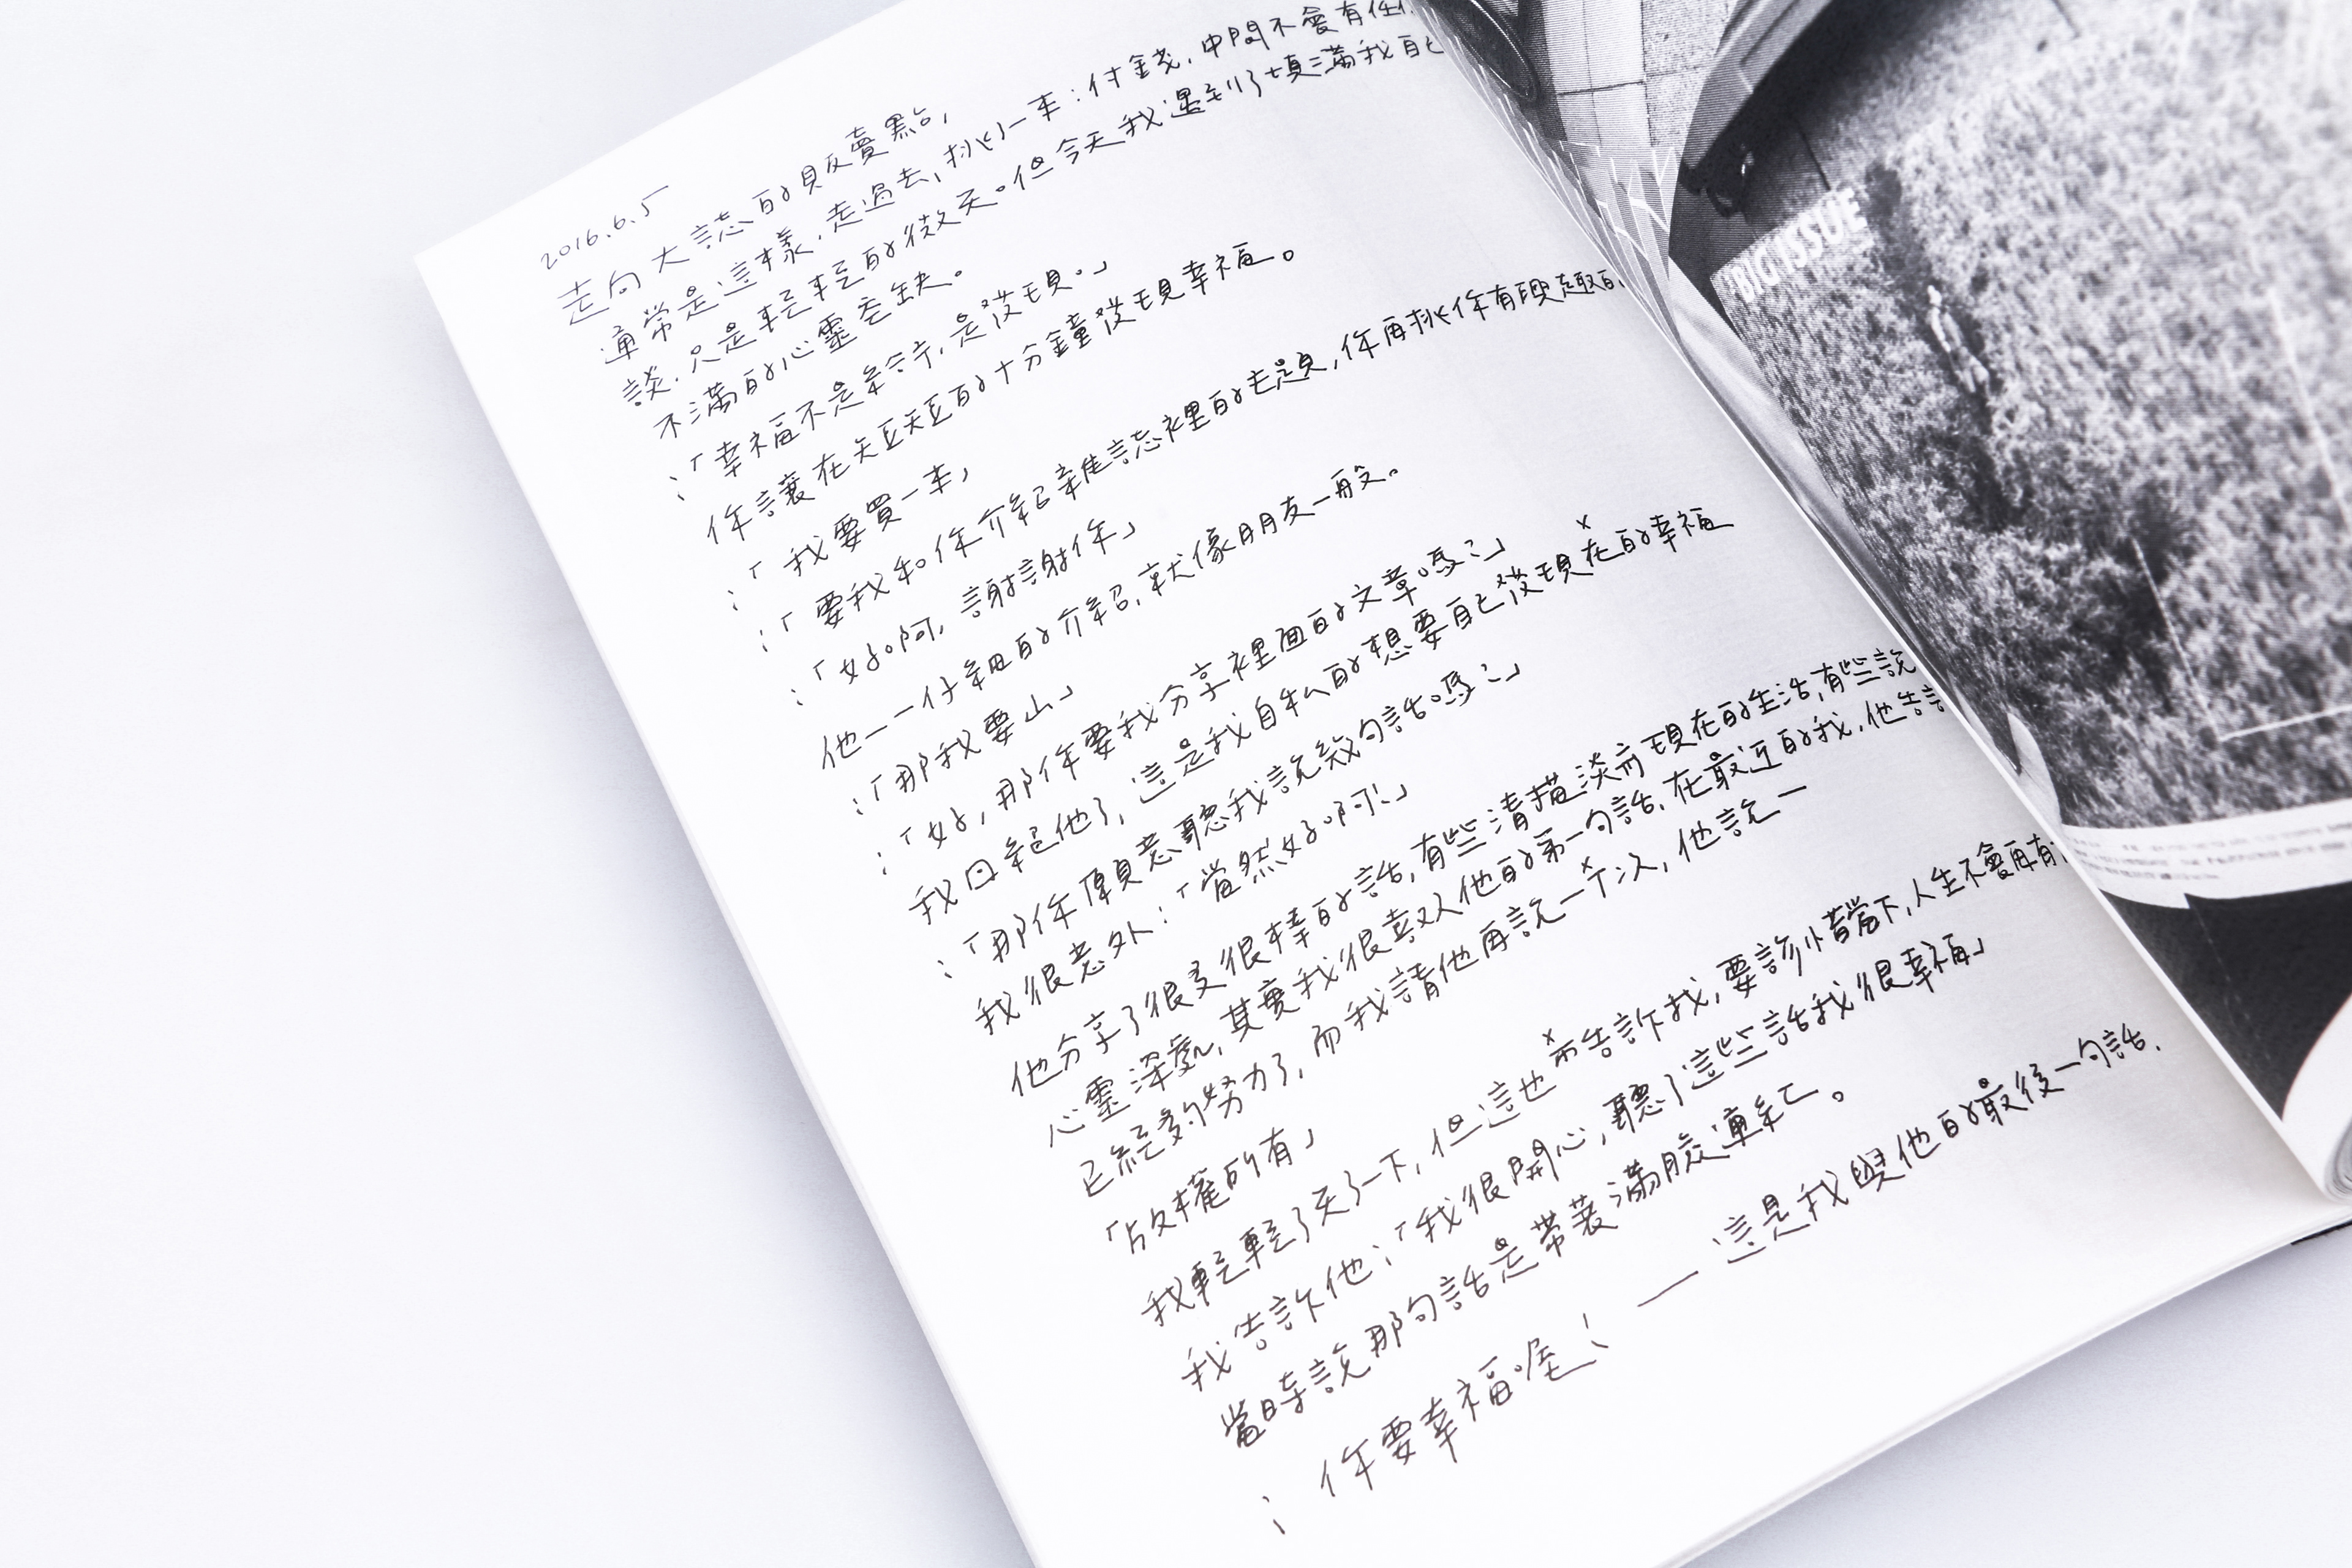 2016.6.5
走向大誌的販賣點,
通常是這樣,走過去,挑一本:付錢,中間不會有任何
談,只是輕輕的微笑。但今天我遇到了填滿我自己
不滿的心靈空缺。
:「幸福不是給予,是發現。」
你讓在短短的十分鐘發現幸福。
「我要買一本,
:「要我和你介紹雜誌裡的主題,你再挑你有興趣的
:「好啊,謝謝你」
他一一仔細的介紹,就像朋友一般。
:「那我要山」
「好,那你要我分享裡面的文章嗎?」
:我回絕他了,這是我自私的想要自己發現在的幸福
「那你願意聽我說幾句話嗎?」
:我很意外:「當然好啊!」
他分享了很多很棒的話,有些清描淡寫現在的生活,有些說
心靈深處,其實我很喜歡他的第一句話,在最近的我,他告訴
已經夠努力了,而我請他再說一个次,他說一
「放權所有」
我輕輕了笑了一下,但這也而告訴我,要診惜當下,人生不會再有
我告訴他:「我很開心,聽了這些話我很幸福」
當時說那句話是帶著滿臉通紅。
: 你要幸福喔! — 這是我與他的最後一句話.
BIG ISSUE